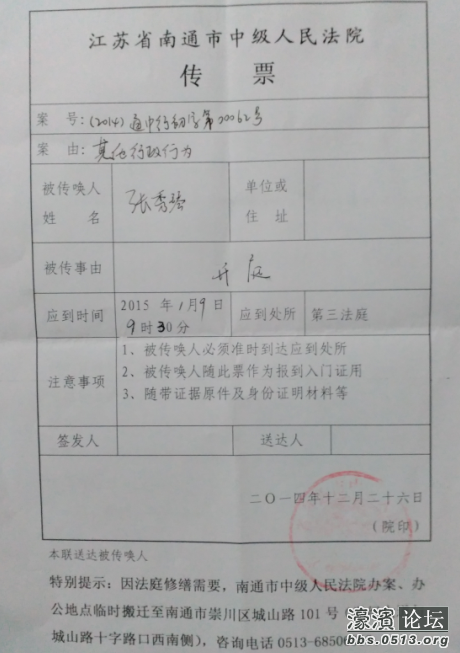 江苏省南通市中级人民法院
传 票
案 号：(2014)通中行初字第00062号
案 由：其他行政行为
被传唤人姓名 张秀 单位或住址
被传事由 开庭
应到时间 2015年1月9日9时30分 应到处所 第三法庭
注意事项
1、被传唤人必须准时到达应到处所
2、被传唤人随此票作为报到入门证用
3、随带证据原件及身份证明材料等
签发人 送达人
二〇一四年十二月二十六日
（院印）
本联送达被传唤人
特别提示：因法庭修缮需要，南通市中级人民法院办案、办
公地点临时搬迁至南通市崇川区城山路101号
城山路十字路口西南侧），咨询电话0513-68506
濠滨论坛
bbs.0513.org